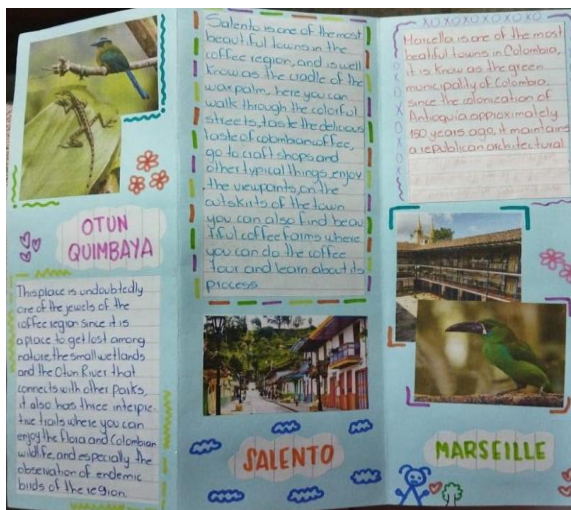 OTUN
QUIMBAYA
This place is undoubtedly
one of the jewels of the
coffee region since it is
a place to get lost among
nature, the small wetlands
and the Otun River that
connects with other parks,
it also has three interpre-
tive trails where you can
enjoy the Flora and Colombian
wildlife, and especially the
observation of endemic
birds of the region
Salento is one of the most
beautiful towns in the
coffee region, and is well
know as the cradle of the
wax palm, here you can
walk through the colorful
streets, taste the delicious
taste of colombian coffee,
go to craft shops and
other typical things, enjoy
the viewpoints, on the
outskirts of the town
you can also find beau
tiful coffee farms where
you can do the coffee
tour and learn about its
process
SALENTO
XOXOXOXOXOXO
Marcella is one of the most
beatiful towns in Colombia,
it is know as the green
municipality of Colombia
since the colonization of
Antioquia approximately
150 years ago, it maintains
a republican architectural
MARSEILLE